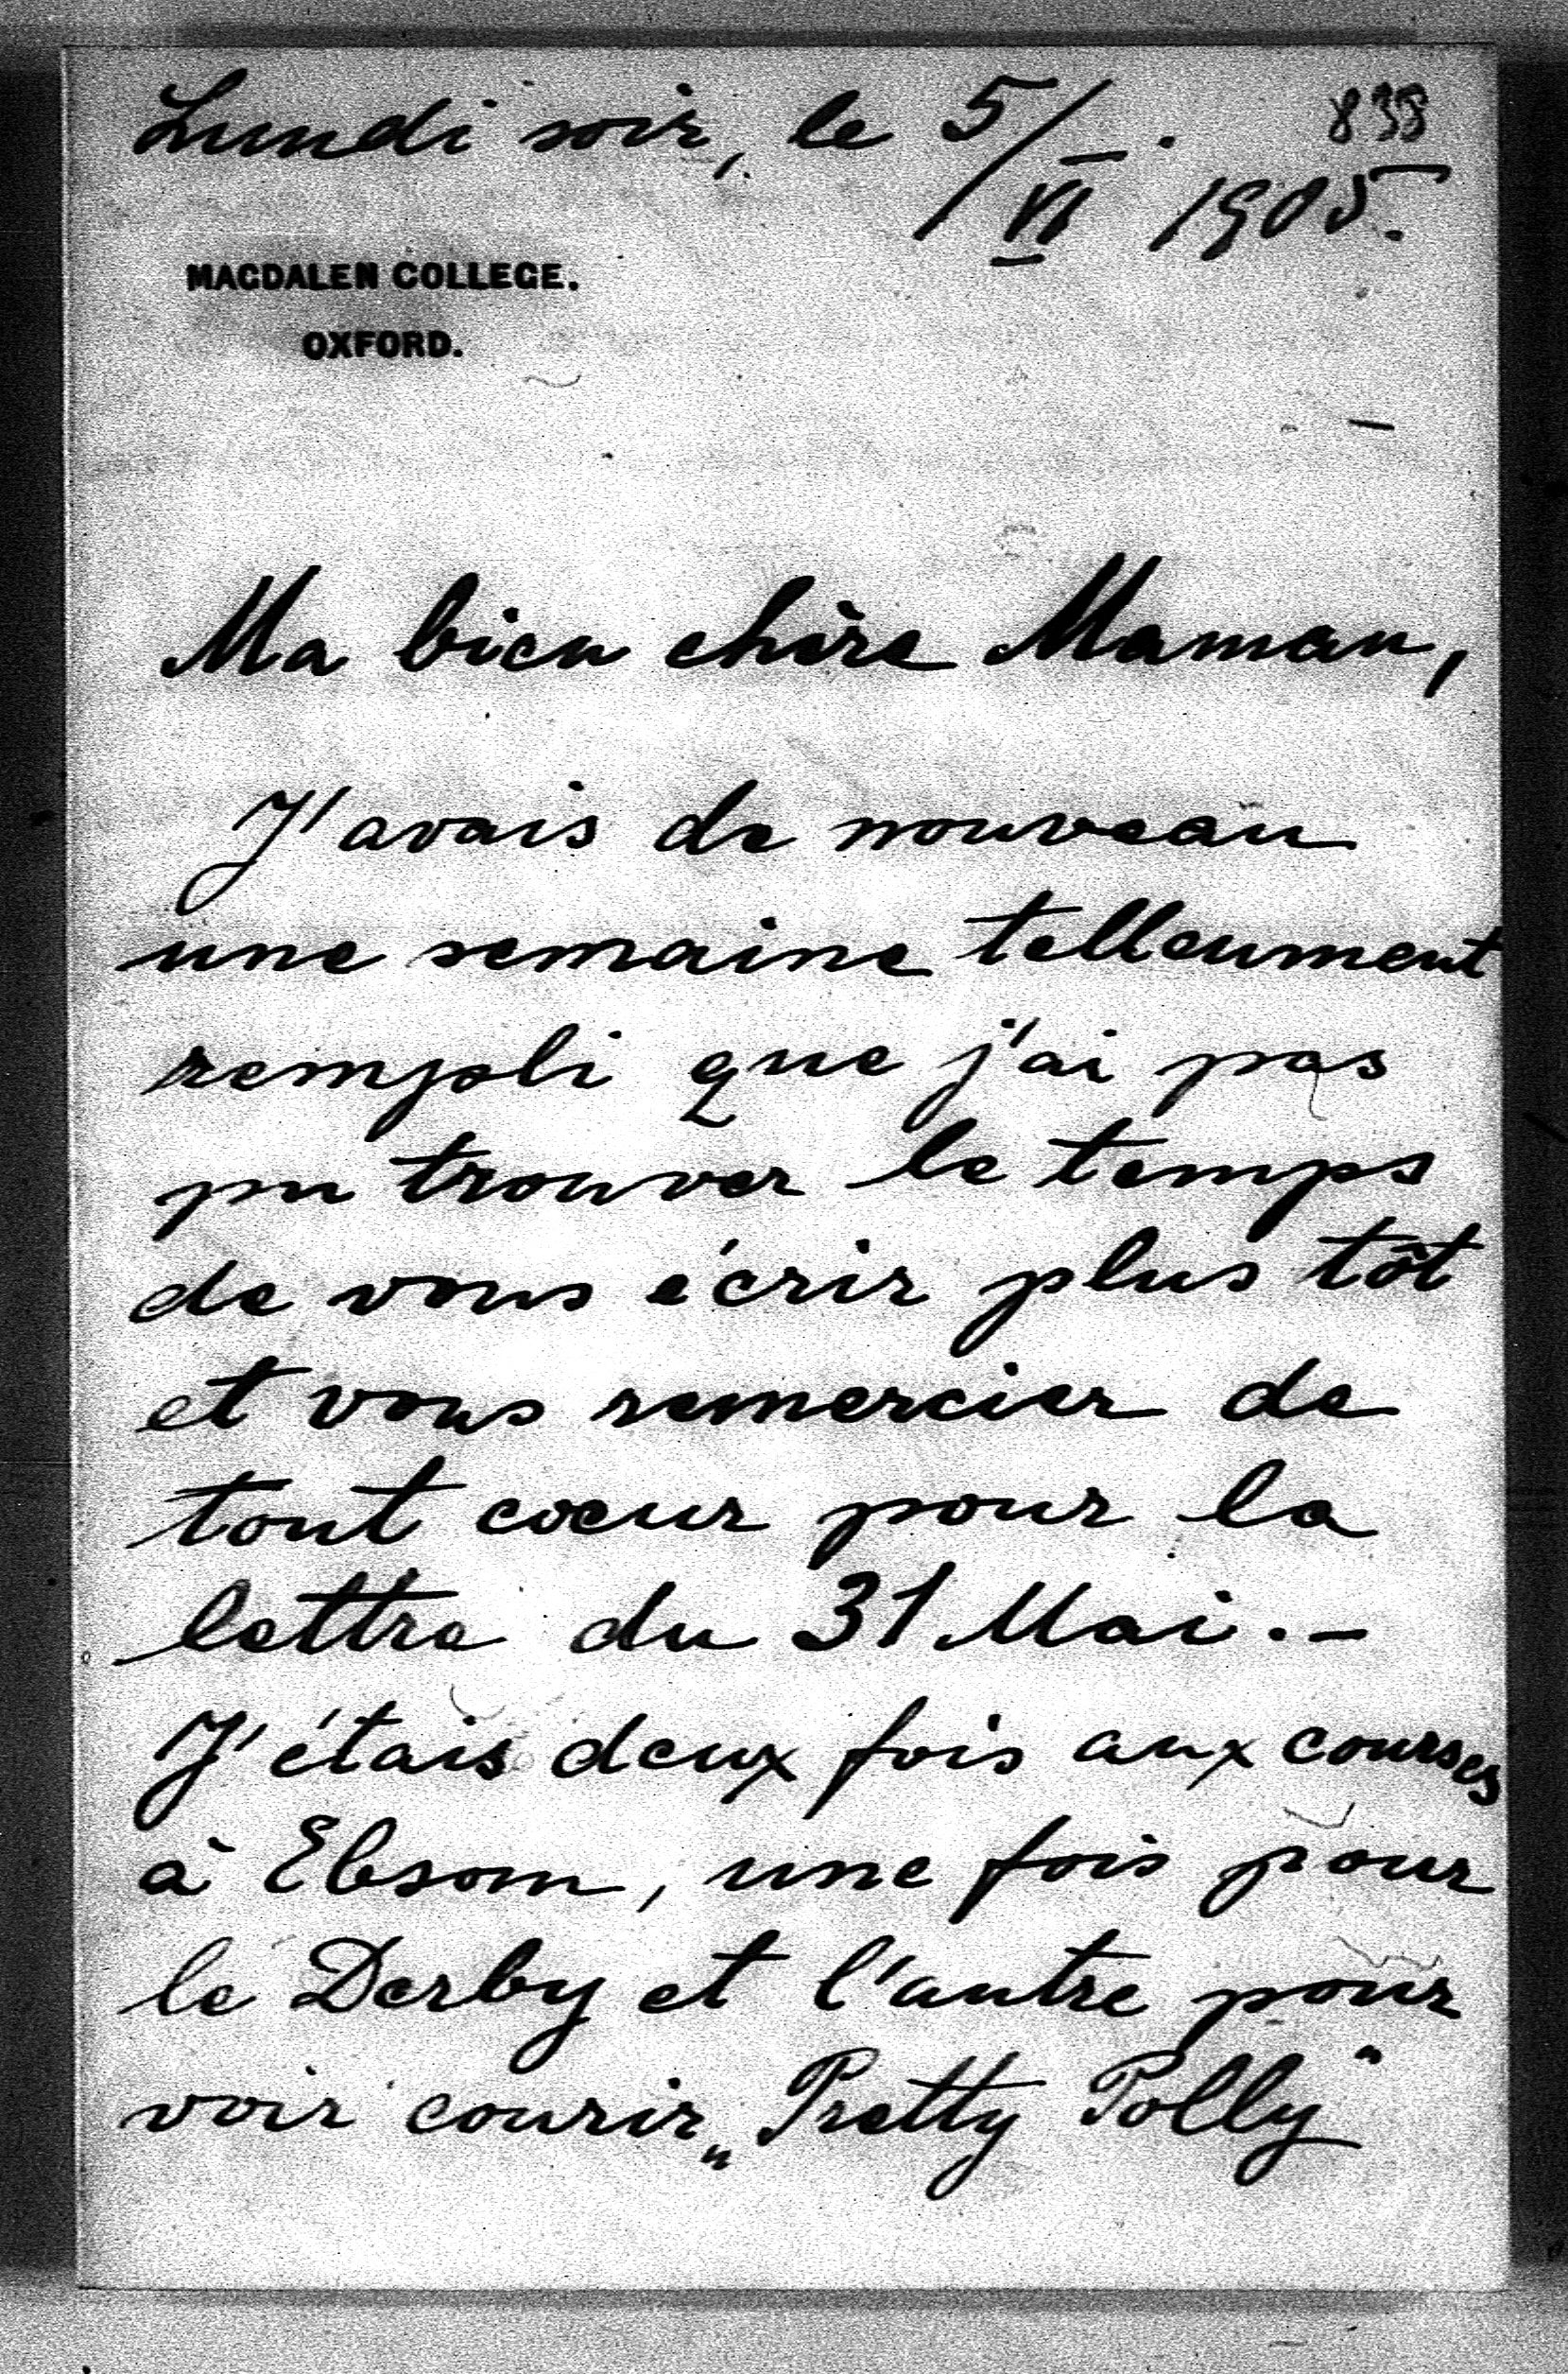 Lundi soir, le 5/VI. 1905.
838
MAGDALEN COLLEGE.
OXFORD.
Ma bien chère Maman,
J'avais de nouveau
une semaine telleument
rempli que j'ai pas
pu trouver le temps
de vous écrir plus tôt
et vous remercier de
tout coeur pour la
lettre du 31 Mai. -
J'étais deux fois aux courses
à Ebsom, une fois pour
le Derby et l'autre pour
voir courir „Pretty Polly"